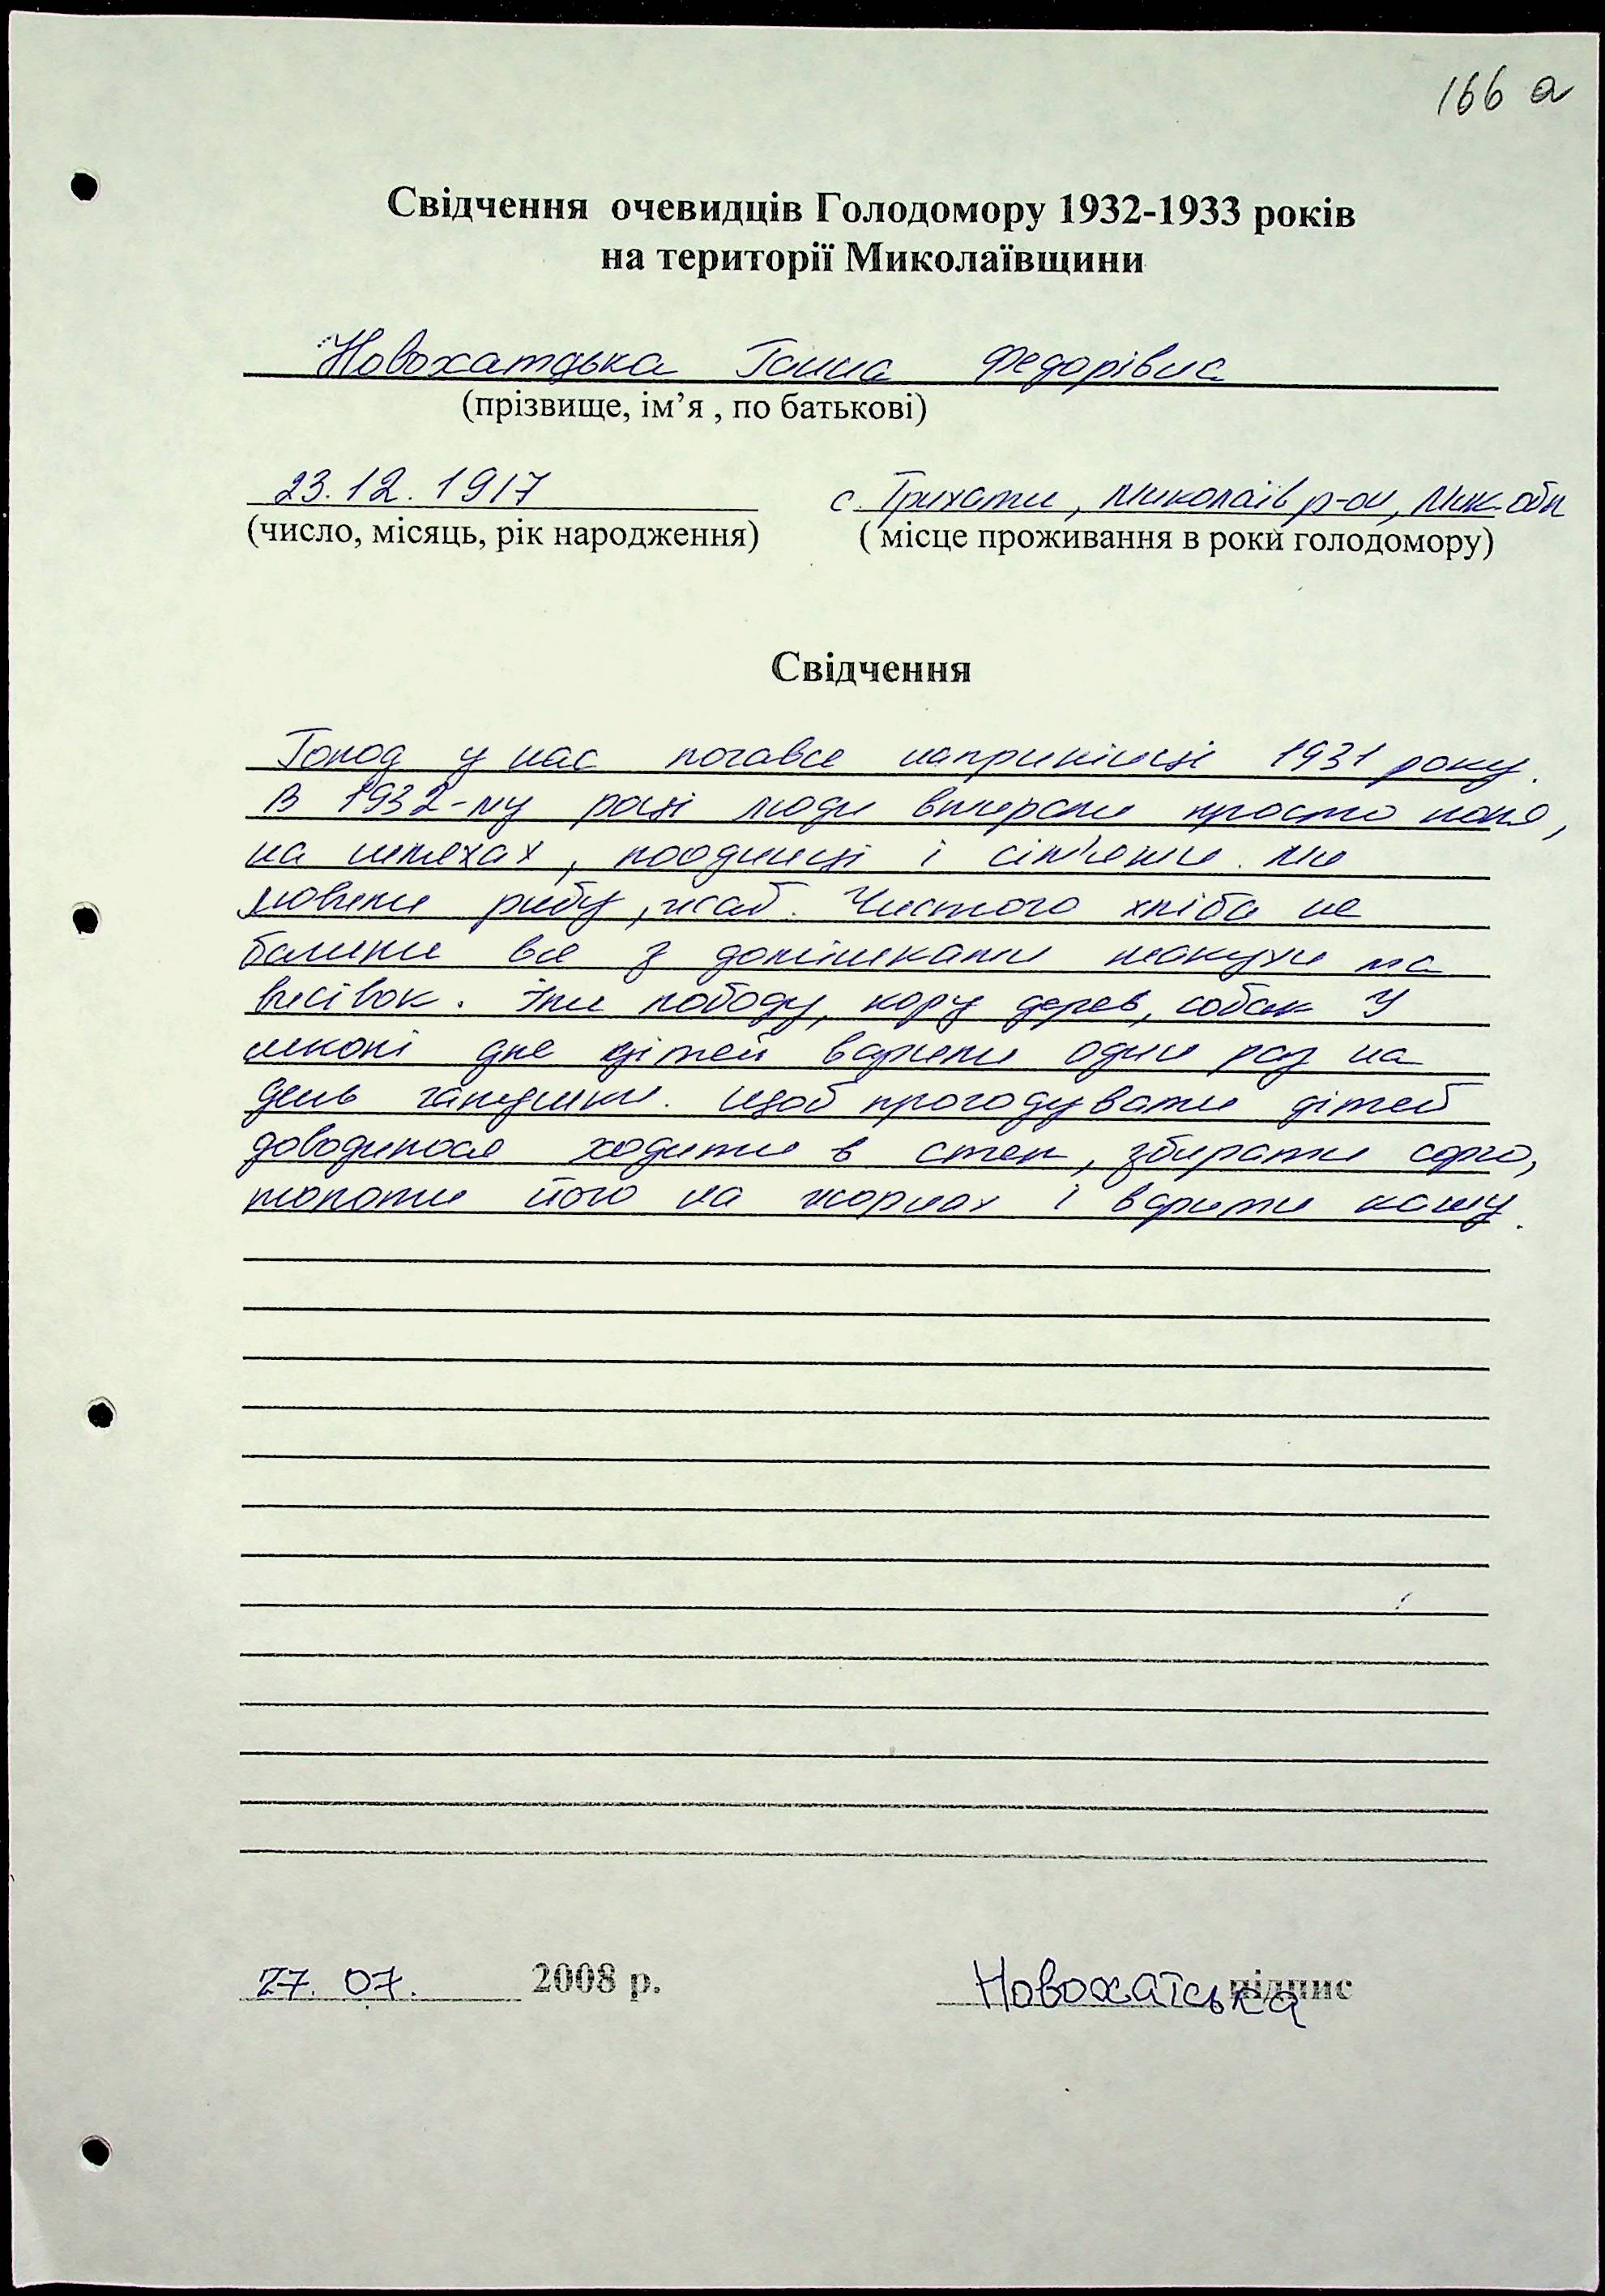 166 а
Свідчення очевидців Голодомору 1932-1933 років
на території Миколаївщини
Новохатдька Ганна Федорівна
(прізвище, ім’я , по батькові)
23.12.1917 с. Трихати, Миколаїв р-он, Мик. обл
(число, місяць, рік народження) ( місце проживання в роки голодомору)
Свідчення
Голод у нас почався наприкінці 1931 року.
В 1932-му році люди вмирали просто
на шляхах, поодинці і сім'ями. Ми
ловили рибу, жаб. Чистого хліба не
бачили все з домішками макухи та
висівок. Їли лободу, кору дерев, собак У
школі для дітей варили один раз на
день галушки. Щоб прогодувати дітей
доводилося ходити в степ, збирати сорго,
молоти його на жорнах і варити кашу.
27. 07. 2008 р. Новохатська підпис